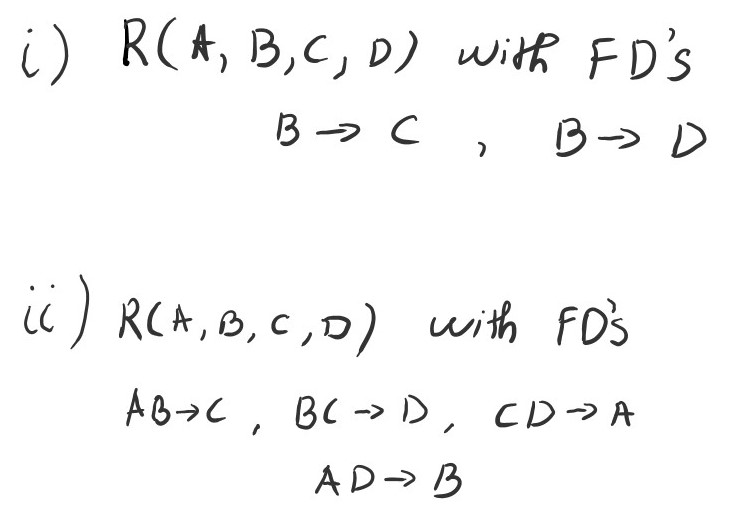 i) R(A, B, C, D) with FD's
B → C , B → D
ii) R(A, B, C, D) with FD's
AB → C , BC → D , CD → A
AD → B